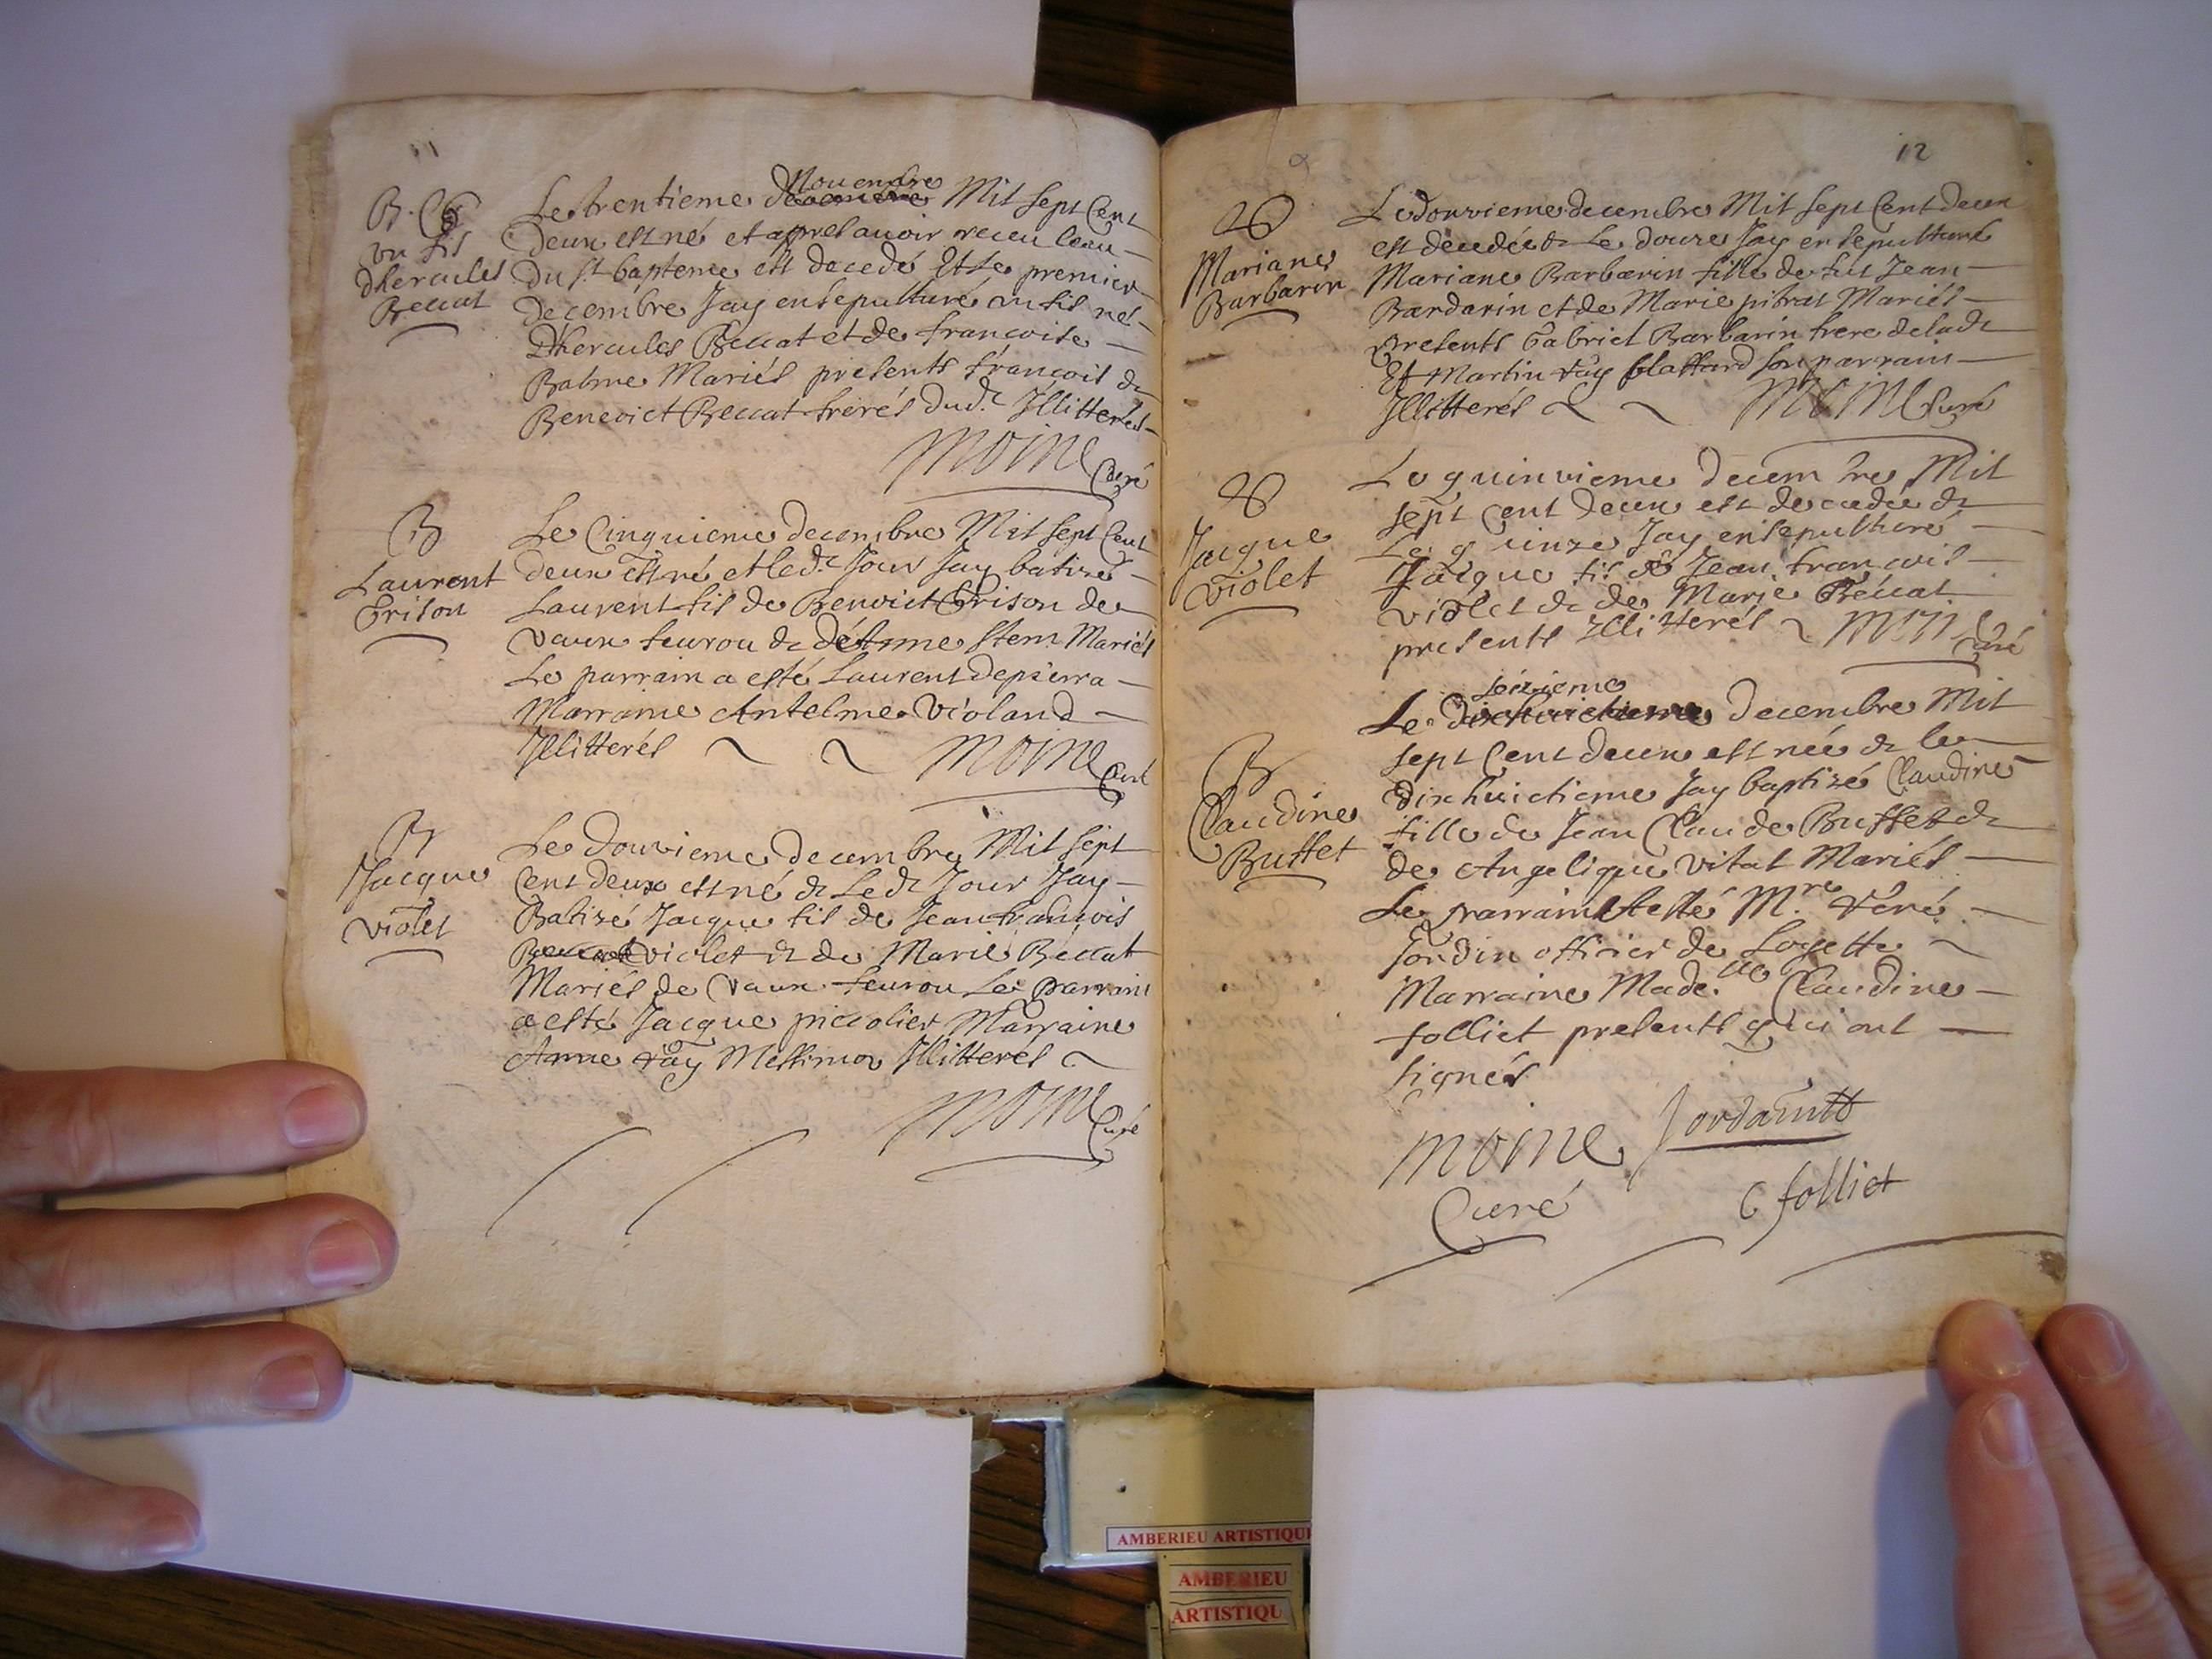 11
B. S
un fils
dhercules
Beccat
Le trentieme Novembre Mil sept Cent
deux est né et apres avoir receu leau
du st bapteme est decedé Et le premier
decembre Jay ensepulturé un fils né
Dhercules Beccat et de francoise
Balme Mariés presents francois &
Benoict Beccat freres dud.t Illitterés
Moine Curé
B
Laurent
Brison
Le Cinquieme decembre Mil sept Cent
deux est né et led.t Jour Jay batizé
Laurent fils de Benoict Brison de
Vaux fevrou & Mariés
Le parrain a esté Laurent depierra
Marraine Antelme Violand
Illitterés Moine Curé
B
Jacque
Violet
Le douvieme decembre Mil sept
Cent deux est né & Led.t Jour Jay
Batizé Jacque fils de Jean francois
Beccat Violet & de Marie Beccat
Mariés de Vaux fevrou Le parrain
a esté Jacque piccolier Marraine
Anne ray Messimou Illitterés
Moine Curé
12
S
Mariane
Barbarin
Le douvieme decembre Mil sept Cent deux
est decedée & Le douze Jay ensepulturé
Mariane Barbarin fille de fut Jean
Bardarin et de Marie pitrat Mariés
presents Gabriel Barbarin frere de lad.t
Et Martin ray blassard son parrain
Illitterés Moine Curé
S
Jacque
Violet
Le quinvieme decembre Mil
sept Cent deux est decedée &
Le quinze Jay ensepulturé
Jacque fils de Jean francois
Violet & de Marie Beccat
presents Illitterés Moine Curé
B
Claudine
Buffet
seizieme
Le dixhuictieme decembre Mil
sept Cent deux est née & le
dixhuictieme Jay baptizé Claudine
fille de Jean Claude Buffet &
de Angelique Vital Mariés
Le parrain A esté M.re réné
Jordin officier de Loyette
Marraine Made.lle Claudine
folliet presents qui ont
signés
Moine
Curé
C folliet
AMBERIEU ARTISTIQU
AMBERIEU
ARTISTIQU